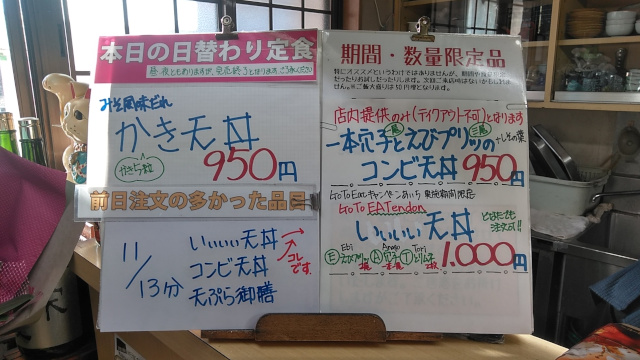 本日の日替わり定食
昼・夜ともありますが、完売終了となります ご了承ください
みそ風味だれ
かき天丼
かき5粒
950円
前日注文の多かった品目
11/13分
いいいい天丼
コンビ天丼
天ぷら御膳
コレです。
期間・数量限定品
店内提供のみ(テイクアウト不可)となります
一本穴子とえびプリッの
一尾
三尾
+しその葉
コンビ天丼 950円
Go To Eatキャンペーンあいち 実施期間限定
Go To EATendon
いいいい天丼
どなたでも
注文可!!
Ebi
Anago
Tori
1,000円